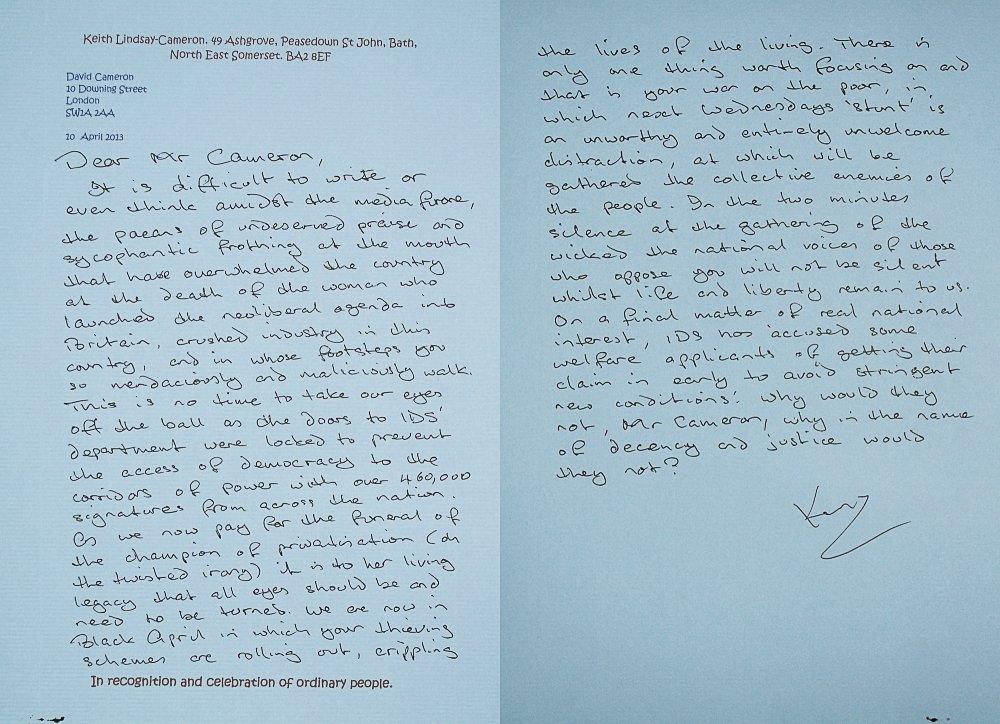 Keith Lindsay-Cameron. 49 Ashgrove, Peasedown St John, Bath,
North East Somerset. BA2 8EF
David Cameron
10 Downing Street
London
SW1A 2AA
10 April 2013
Dear Mr Cameron,
It is difficult to write or
even think amidst the media furore,
the paeans of undeserved praise and
sycophantic frothing at the mouth
that have overwhelmed the country
at the death of the woman who
launched the neoliberal agenda into
Britain, crushed industry in this
country, and in whose footsteps you
so mendaciously and maliciously walk.
This is no time to take our eyes
off the ball as the doors to IDS'
department were locked to prevent
the access of democracy to the
corridors of power with over 460,000
signatures from across the nation.
As we now pay for the funeral of
the champion of privatisation (oh
the twisted irony) it is to her living
legacy that all eyes should be and
need to be turned. We are now in
Black April in which your thieving
schemes are rolling out, crippling
In recognition and celebration of ordinary people.
the lives of the living. There is
only one thing worth focusing on and
that is your war on the poor, in
which next Wednesdays 'stunt' is
an unworthy and entirely unwelcome
distraction, at which will be
gathered the collective enemies of
the people. In the two minutes
silence at the gathering of the
wicked the national voices of those
who oppose you will not be silent
whilst life and liberty remain to us.
On a final matter of real national
interest, IDS has accused some
welfare applicants of getting their
claim in early to avoid stringent
new conditions. Why would they
not, Mr Cameron, why in the name
of decency and justice would
they not?